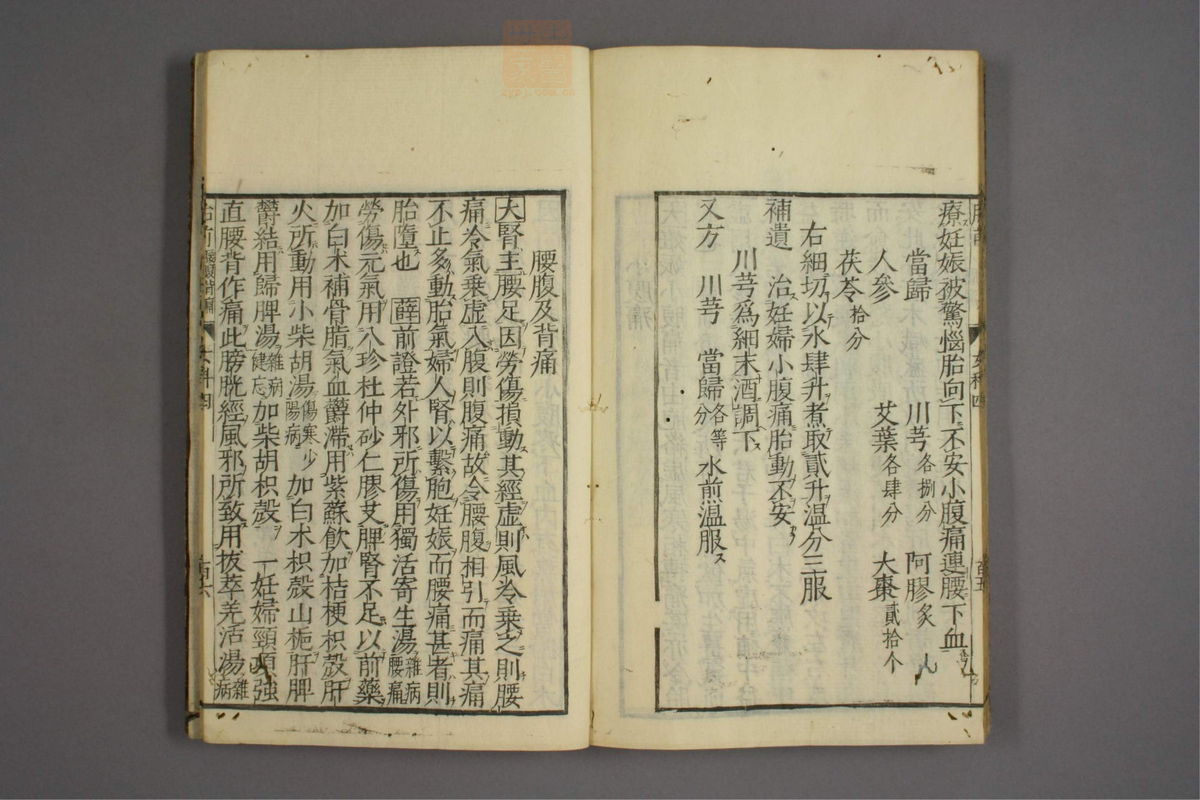 療妊娠被驚惱胎向下不安小腹痛連腰下血
當歸 川芎各捌分 阿膠炙
人參 艾葉各肆分 大棗貳拾个
茯苓拾分
右細切以水肆升煮取貳升温分三服
補遺 治妊婦小腹痛胎動不安
川芎爲細末酒調下
又方 川芎 當歸各等分 水煎温服
腰腹及背痛
大腎主腰足因勞傷損動其經虚則風冷乗之則腰
痛冷氣乗虚入腹則腹痛故令腰腹相引而痛其痛
不止多動胎氣婦人腎以繫胞妊娠而腰痛甚者則
胎墮也 薛前證若外邪所傷用獨活寄生湯雜病腰痛
勞傷元氣用八珍杜仲砂仁膠艾脾腎不足以前藥
加白朮補骨脂氣血欝滯用紫蘇飲加桔梗枳殼肝
火所動用小柴胡湯傷寒少陽病 加白朮枳殼山梔肝脾
欝結用歸脾湯雜病健忘加柴胡枳殼 一妊婦頸項強
直腰背作痛此膀胱經風邪所致用拔萃羌活湯雜病
女科四
百六